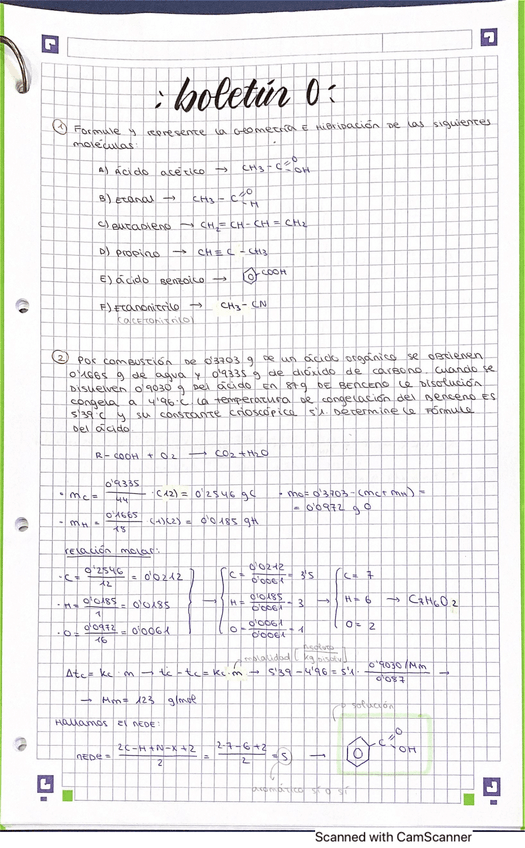 : boletín 0 :
① Formule y represente la geometría e hibridación de las siguientes
moléculas:
A) Ácido acético → CH3 - C =O OH
B) Etanal → CH3 - C =O H
C) Butadieno → CH2 = CH - CH = CH2
D) Propino → CH ≡ C - CH3
E) ácido Benzoico → COOH
F) Etanonitrilo → CH3 - CN
(acetonitrilo)
② Por combustión de 0'3703 g de un ácido orgánico se obtienen
0'1665 g de agua y 0'9335 g de dióxido de carbono. Cuando se
disuelven 0'9030 g del ácido en 87 g de Benceno la disolución
congela a 4'96°C. La temperatura de congelación del Benceno es
5'39°C y su constante crioscópica 5'1. Determine la fórmula
del ácido.
R - COOH + O2 → CO2 + H2O
· mc = 0'9335 / 44 · (12) = 0'2546 gC · mo = 0'3703 - (mc + mH) =
= 0'0972 g O
· mH = 0'1665 / 18 (1)(2) = 0'0185 gH
relación molar:
· C = 0'2546 / 12 = 0'0212 → C = 0'0212 / 0'0061 = 3'5 → C = 7
· H = 0'0185 / 1 = 0'0185 H = 0'0185 / 0'0061 = 3 H = 6 → C7H6O2
· O = 0'0972 / 16 = 0'0061 O = 0'0061 / 0'0061 = 1 O = 2
molalidad
Δtc = Kc · m → tc - tc = Kc · m → 5'39 - 4'96 = 5'1 · 0'9030/Mm / 0'087 →
→ Mm = 123 g/mol
solución
Hallamos el nEDE:
nEDE = 2C - H + N - X + 2 / 2 = 2·7 - 6 + 2 / 2 = 5 → C =O OH
aromático sí o sí
Scanned with CamScanner